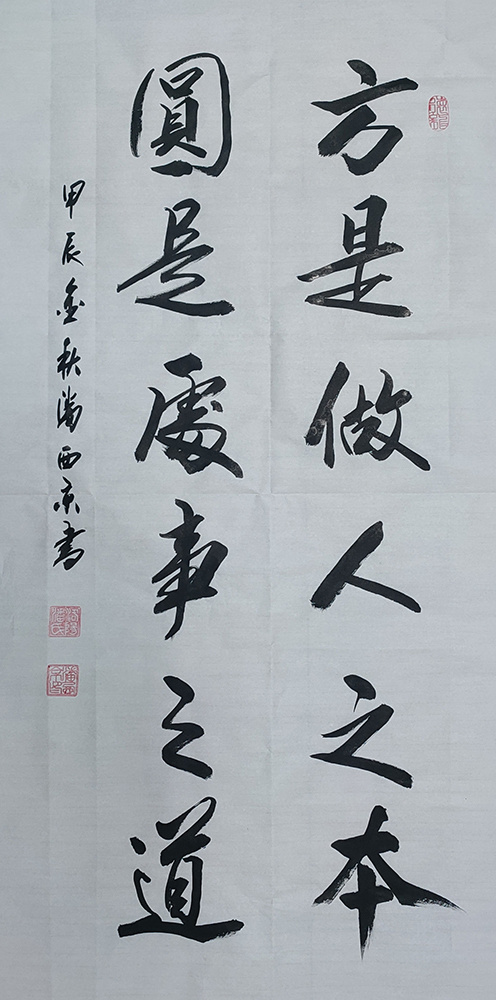 方是做人之本
圓是處事之道
甲辰金秋潘西京書